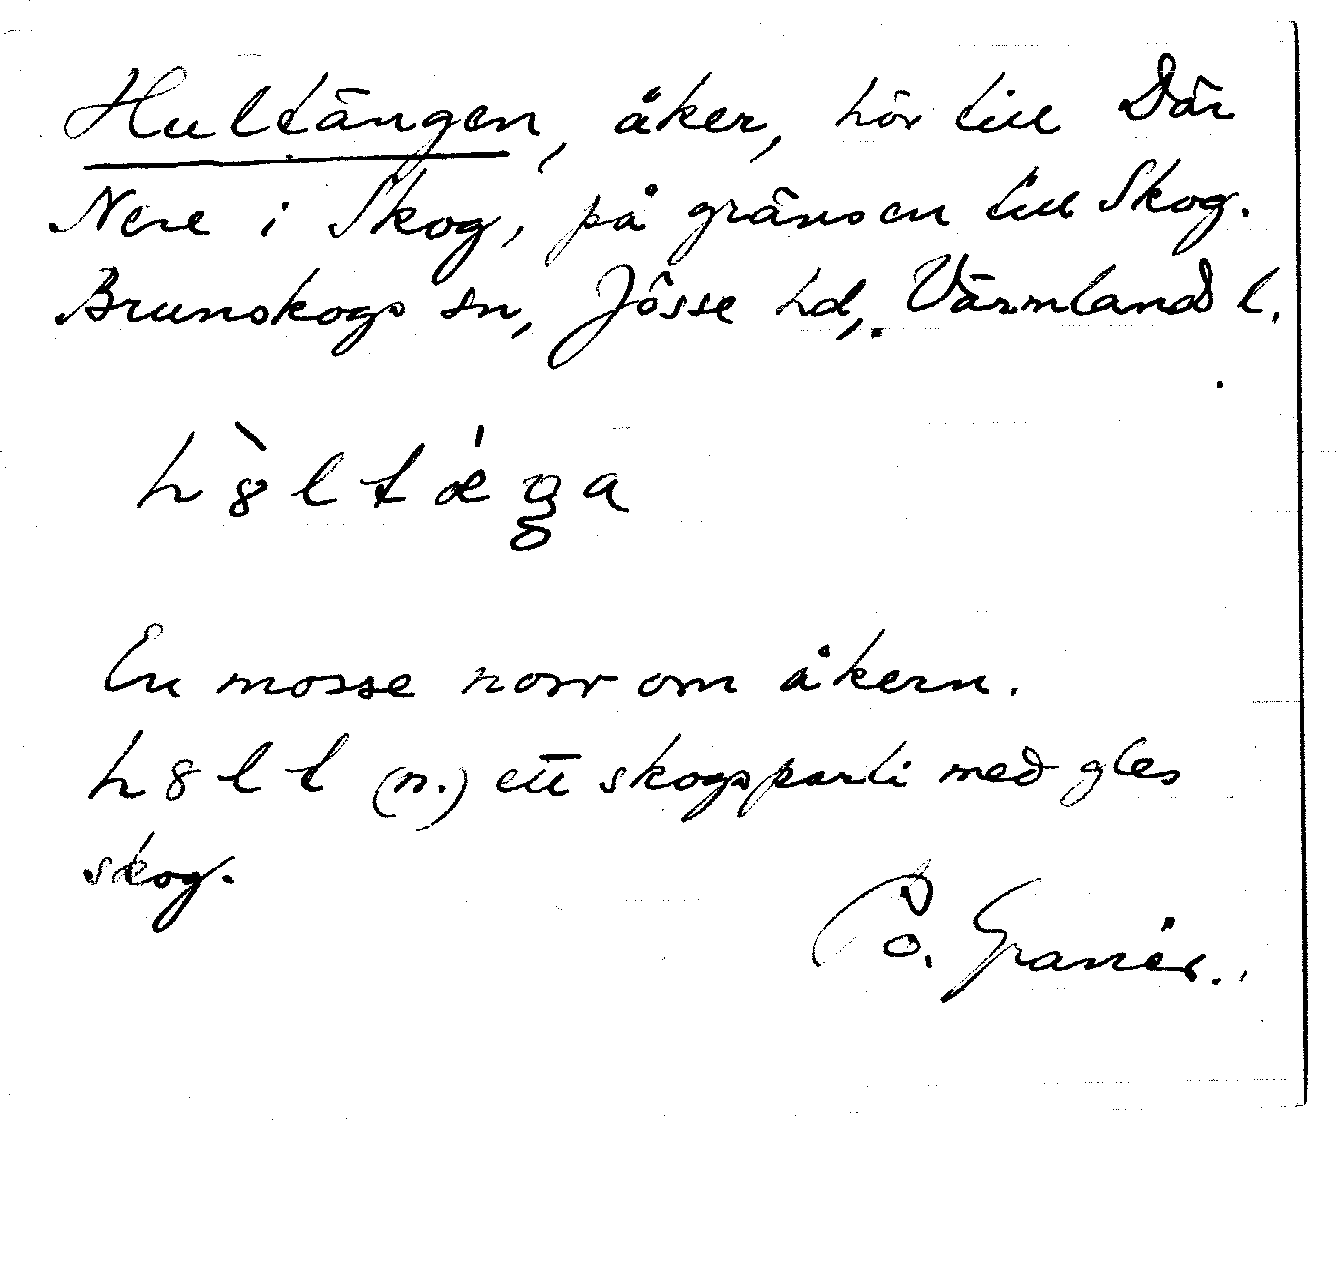 Hultängen, åker, hör till Där
Nere i Skog, på gränsen till Skog.
Brunskogs sn, Jösse hd, Värmland l.
h8̀ltǽga
En mosse norr om åkern.
h8lt (n.) ett skogsparti med gles
skog.
B. Granér.